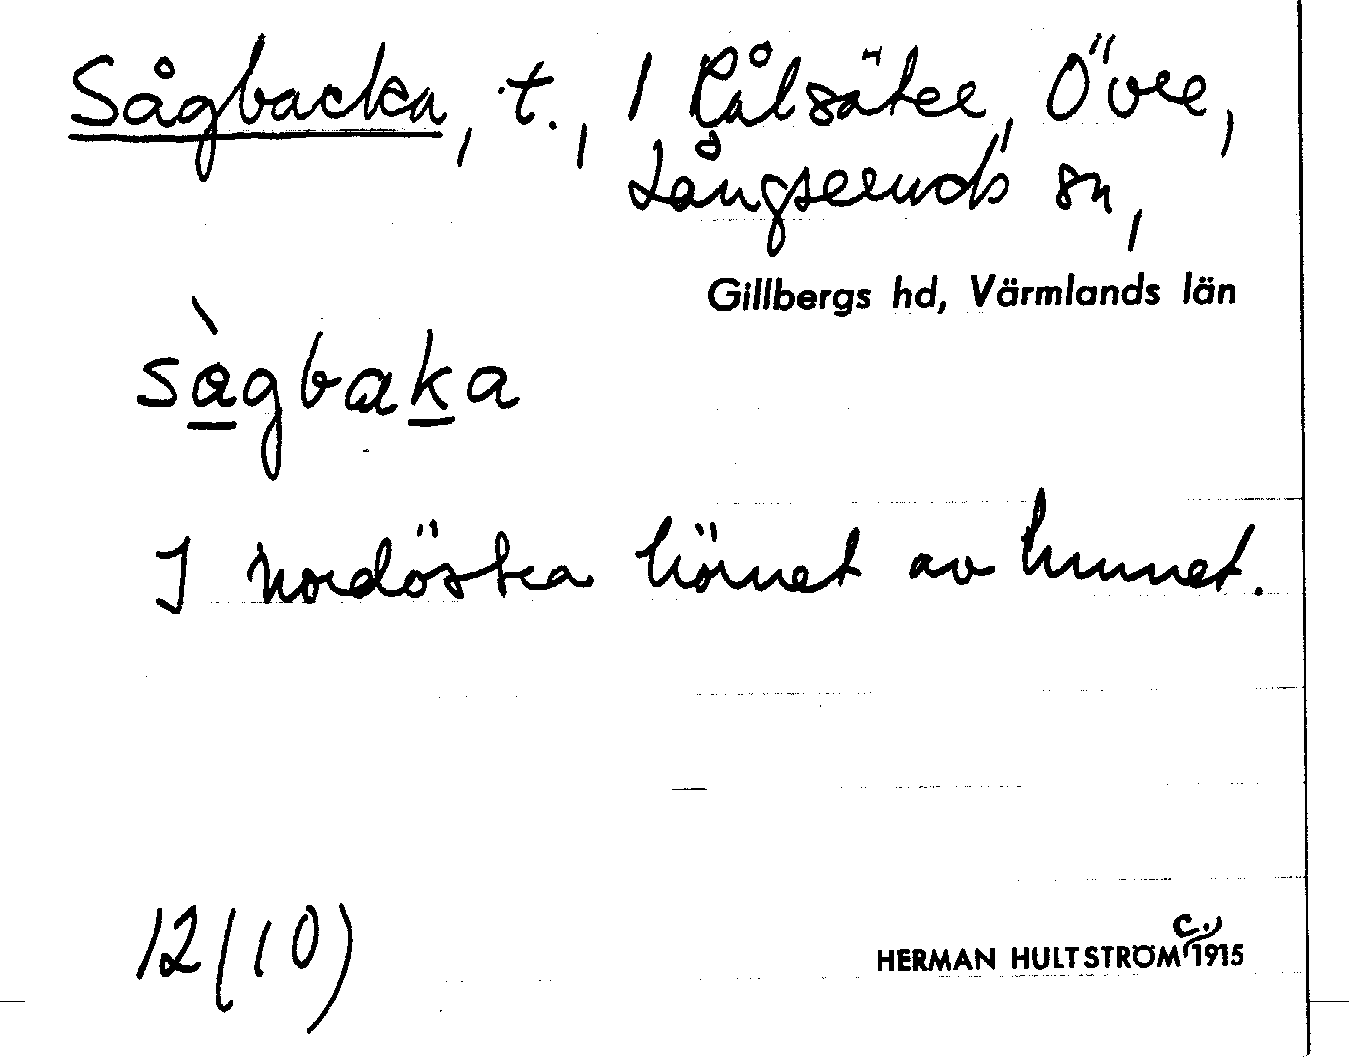 Sågbacka, t., 1 Rålsäter, Övre,
Långseruds sn,
Gillbergs hd, Värmlands län
sàgbaka
I nordöstra hörnet av hemmet.
12(10)
HERMAN HULTSTRÖM c. 1915